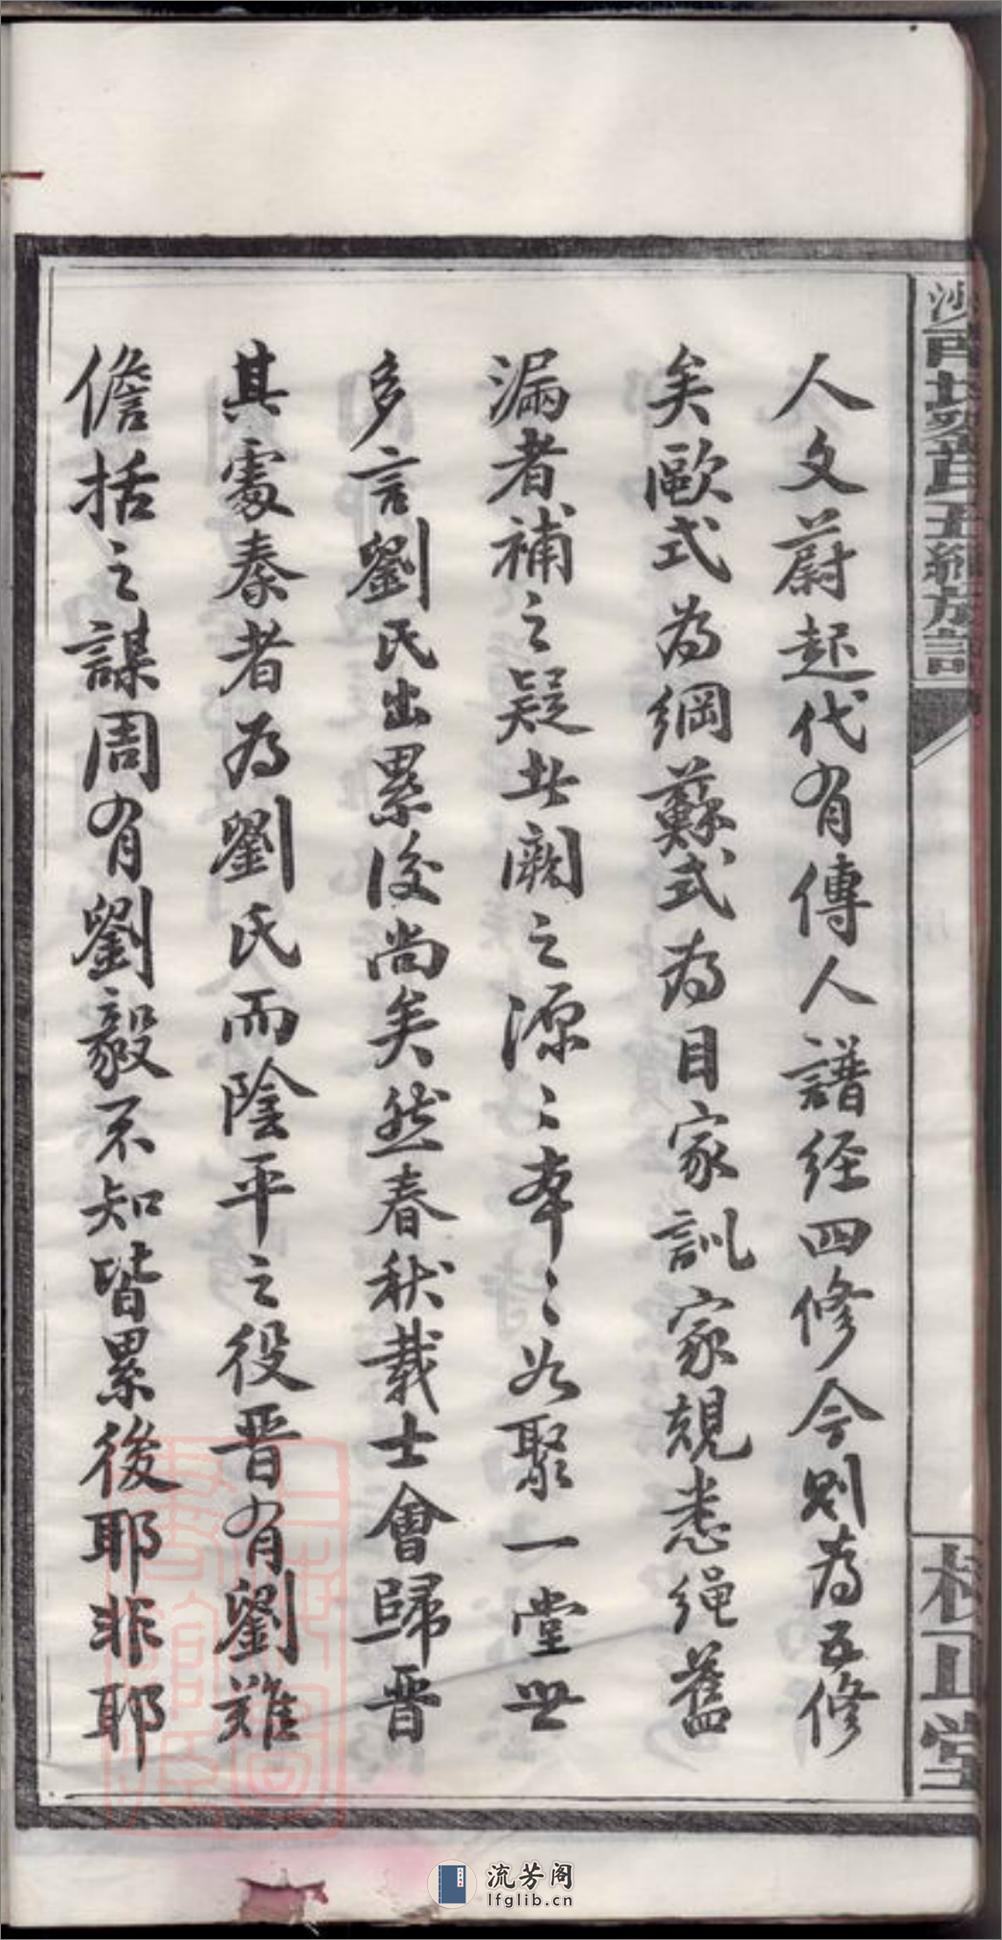 沙 氏五 族譜
堂
人文蔚起代有傳人譜經四修今則為五修
矣歐式為綱蘇式為目家訓家規悉繩舊
漏者補之疑者闕之源〻本〻如聚一堂世
多言劉氏出累後尚矣然春秋載士會歸晉
其處秦者為劉氏而陰平之役晉有劉難
儋括之謀周有劉毅不知皆累後耶非耶
流芳阁
lfglib.cn